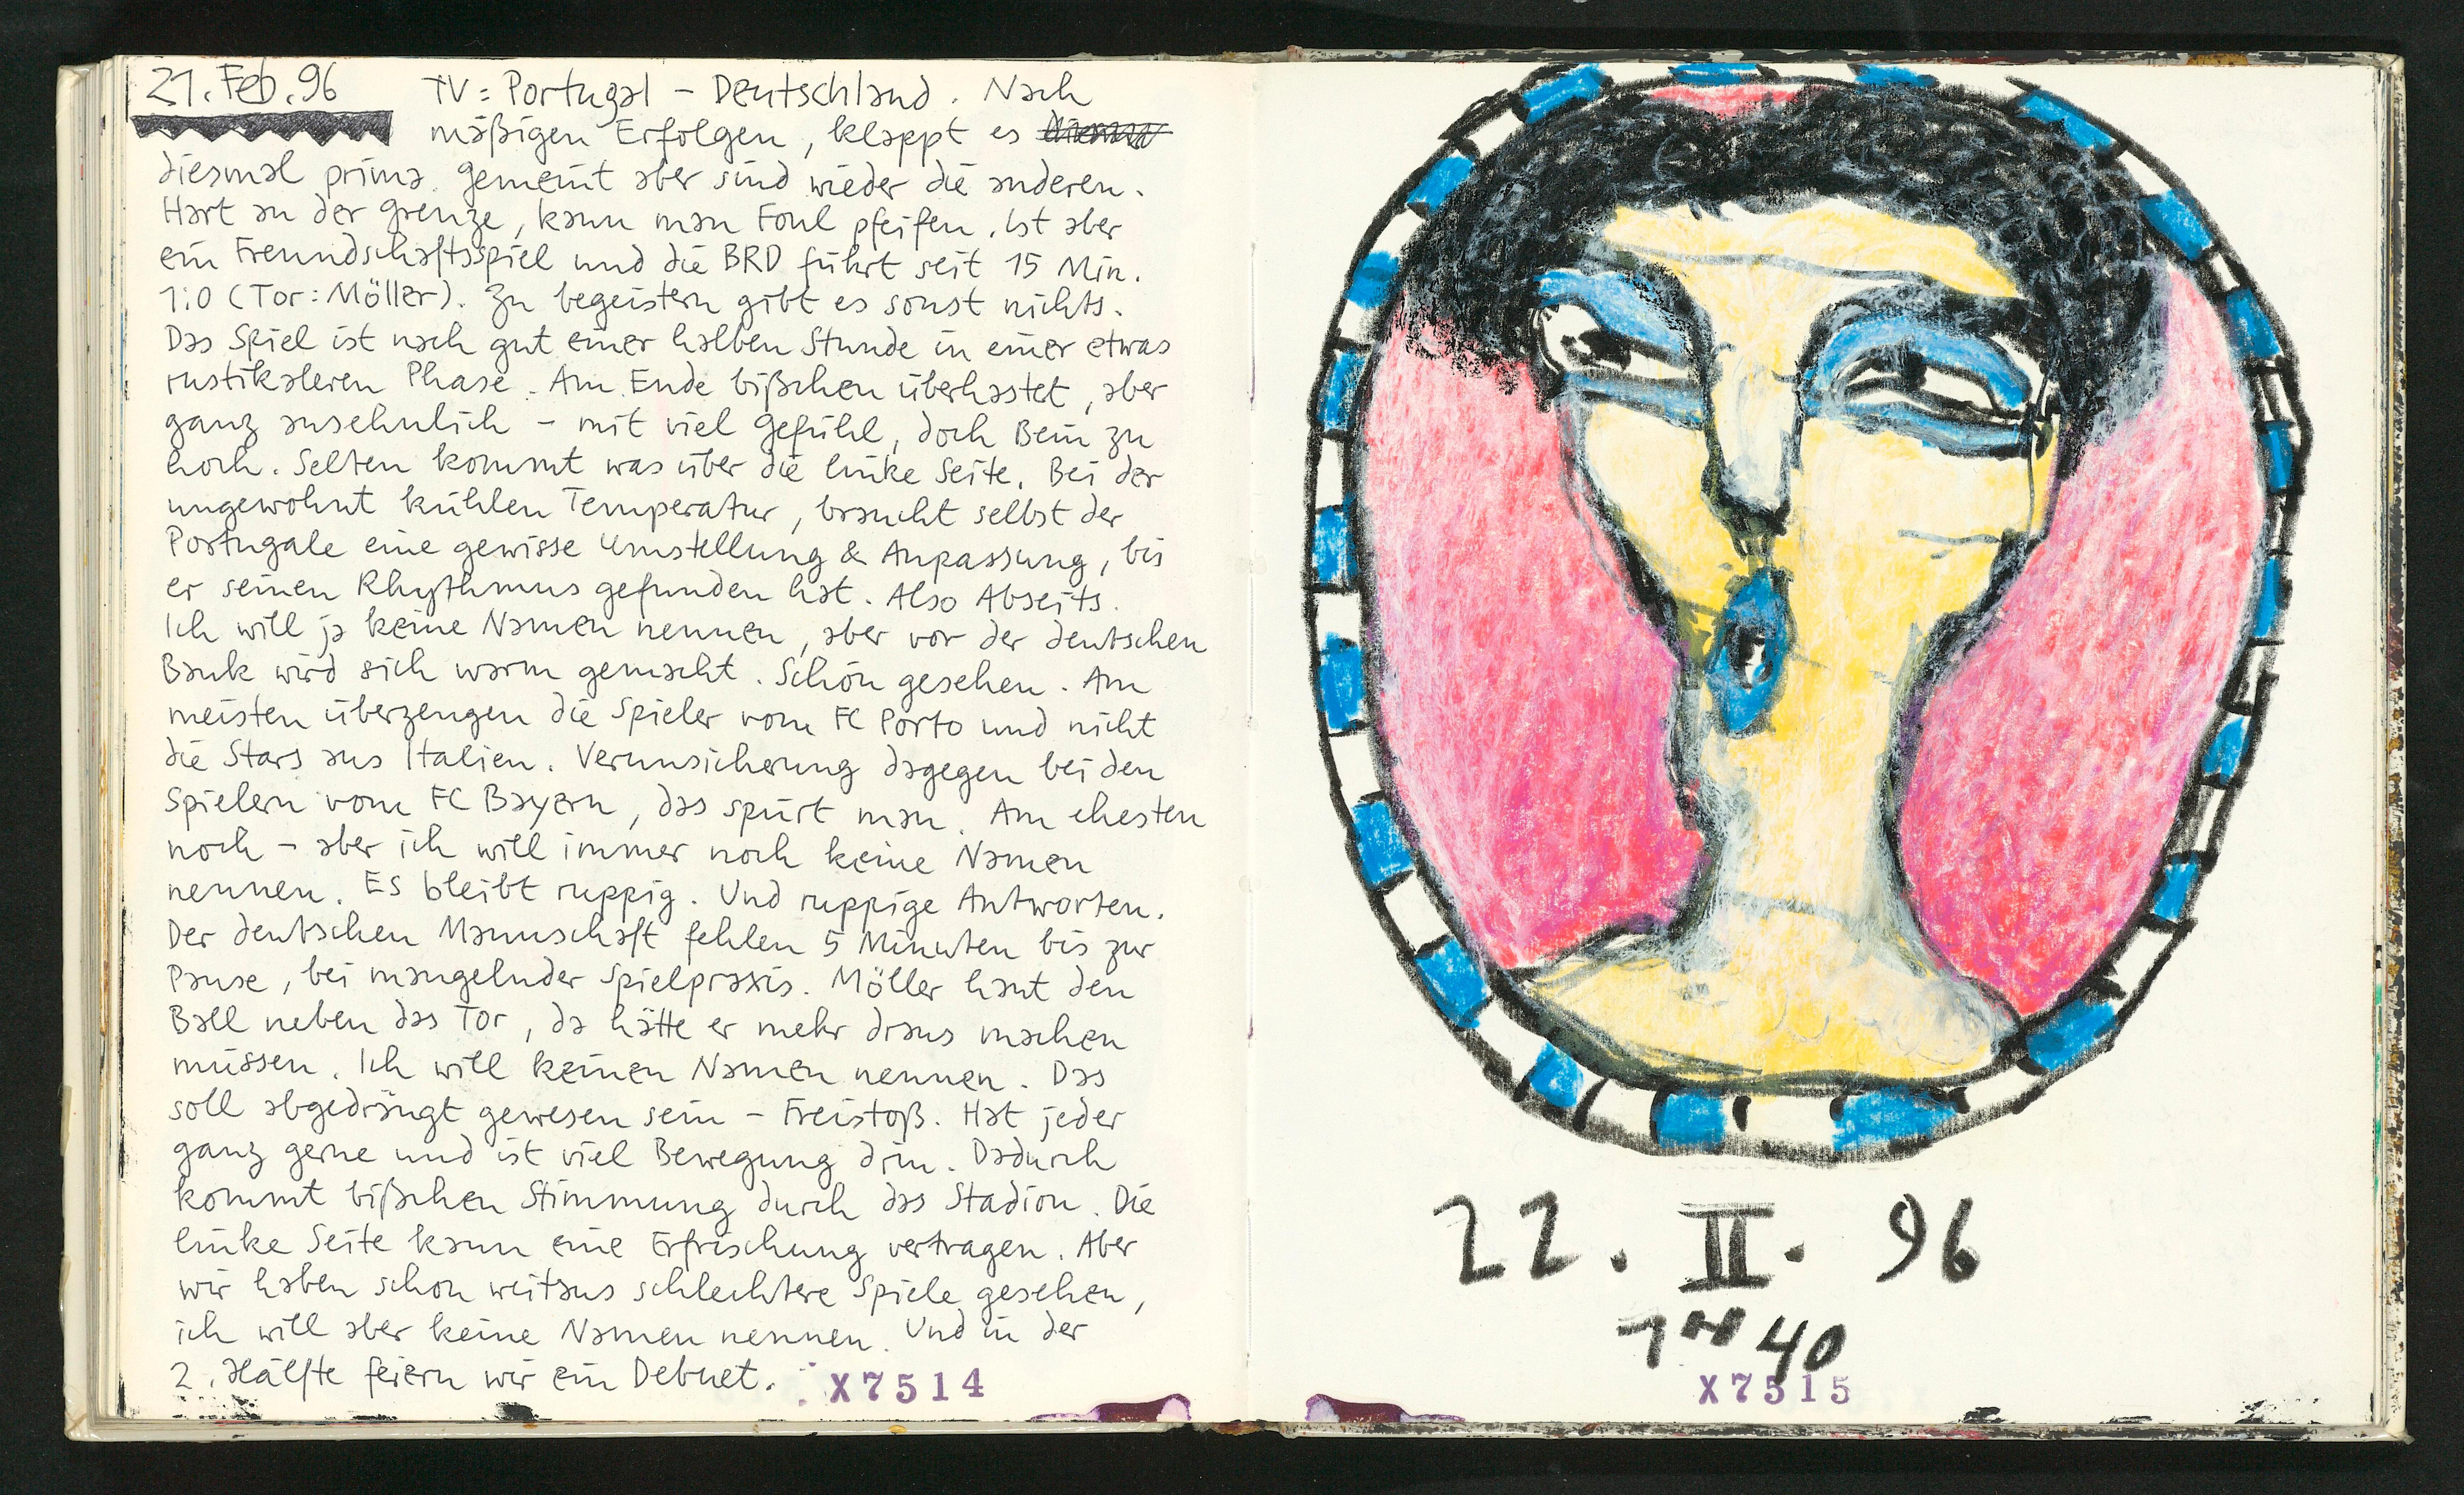 21. Feb. 96 TV: Portugal – Deutschland. Nach
mäßigen Erfolgen, klappt es
diesmal prima. Gemeint aber sind wieder die anderen.
Hart an der Grenze, kann man Foul pfeifen. Ist aber
ein Freundschaftsspiel und die BRD führt seit 15 Min.
1:0 (Tor: Möller). Zu begeistern gibt es sonst nichts.
Das Spiel ist nach gut einer halben Stunde in einer etwas
rustikaleren Phase. Am Ende bißchen überhastet, aber
ganz ansehnlich – mit viel Gefühl, doch Bein zu
hoch. Selten kommt was über die linke Seite. Bei der
ungewohnt kühlen Temperatur, braucht selbst der
Portugale eine gewisse Umstellung & Anpassung, bis
er seinen Rhythmus gefunden hat. Also Abseits.
Ich will ja keine Namen nennen, aber vor der deutschen
Bank wird sich warm gemacht. Schön gesehen. Am
meisten überzeugen die Spieler vom FC Porto und nicht
die Stars aus Italien. Verunsicherung dagegen bei den
Spielern vom FC Bayern, das spürt man. Am ehesten
noch – aber ich will immer noch keine Namen
nennen. Es bleibt ruppig. Und ruppige Antworten.
Der deutschen Mannschaft fehlen 5 Minuten bis zur
Pause, bei mangelnder Spielpraxis. Möller haut den
Ball neben das Tor, da hätte er mehr draus machen
müssen. Ich will keinen Namen nennen. Das
soll abgedrängt gewesen sein – Freistoß. Hat jeder
ganz gerne und ist viel Bewegung drin. Dadurch
kommt bißchen Stimmung durch das Stadion. Die
linke Seite kann eine Erfrischung vertragen. Aber
wir haben schon weitaus schlechtere Spiele gesehen,
ich will aber keine Namen nennen. Und in der
2. Hälfte feiern wir ein Debuet.
X7514
22. II. 96
1 40
X7515